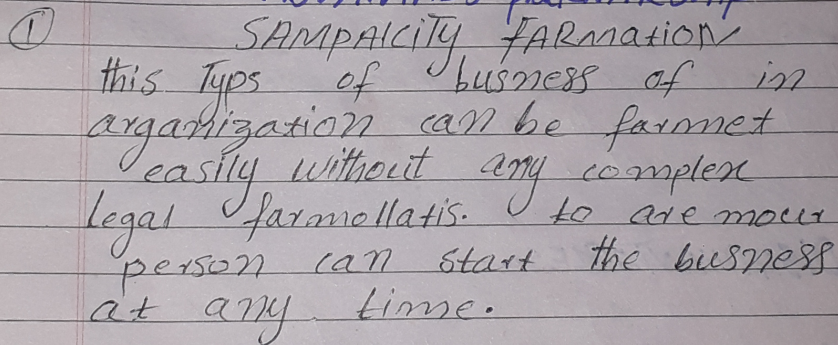 ① SAMPALCITY FARMATION
this Typs of busness of in
arganization can be farmet
easily without any complex
legal farmollatis. to are mour
person can start the busness
at any time.